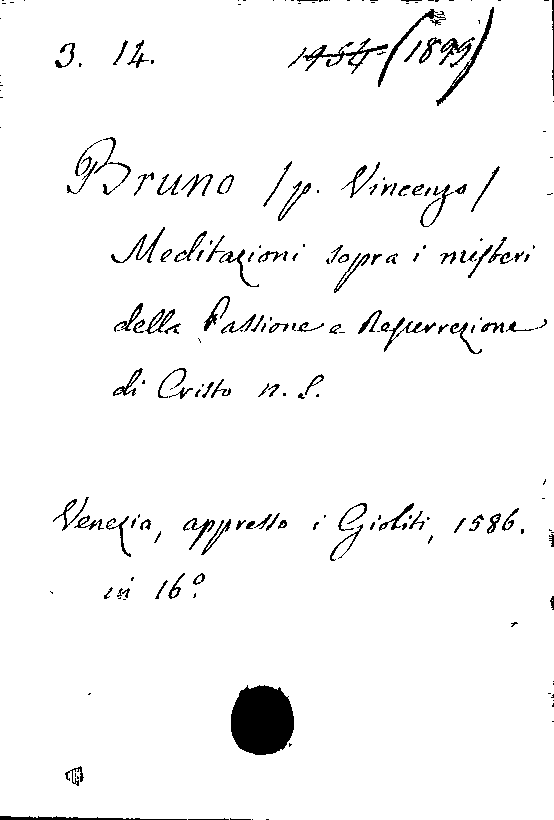 3. 14. 1954 (1899)
Bruno / p. Vincenzo /
Meditazioni sopra i misteri
della Passione e Resurrezione
di Cristo n. S.
Venezia, appresso i Gioliti, 1586.
in 16º.